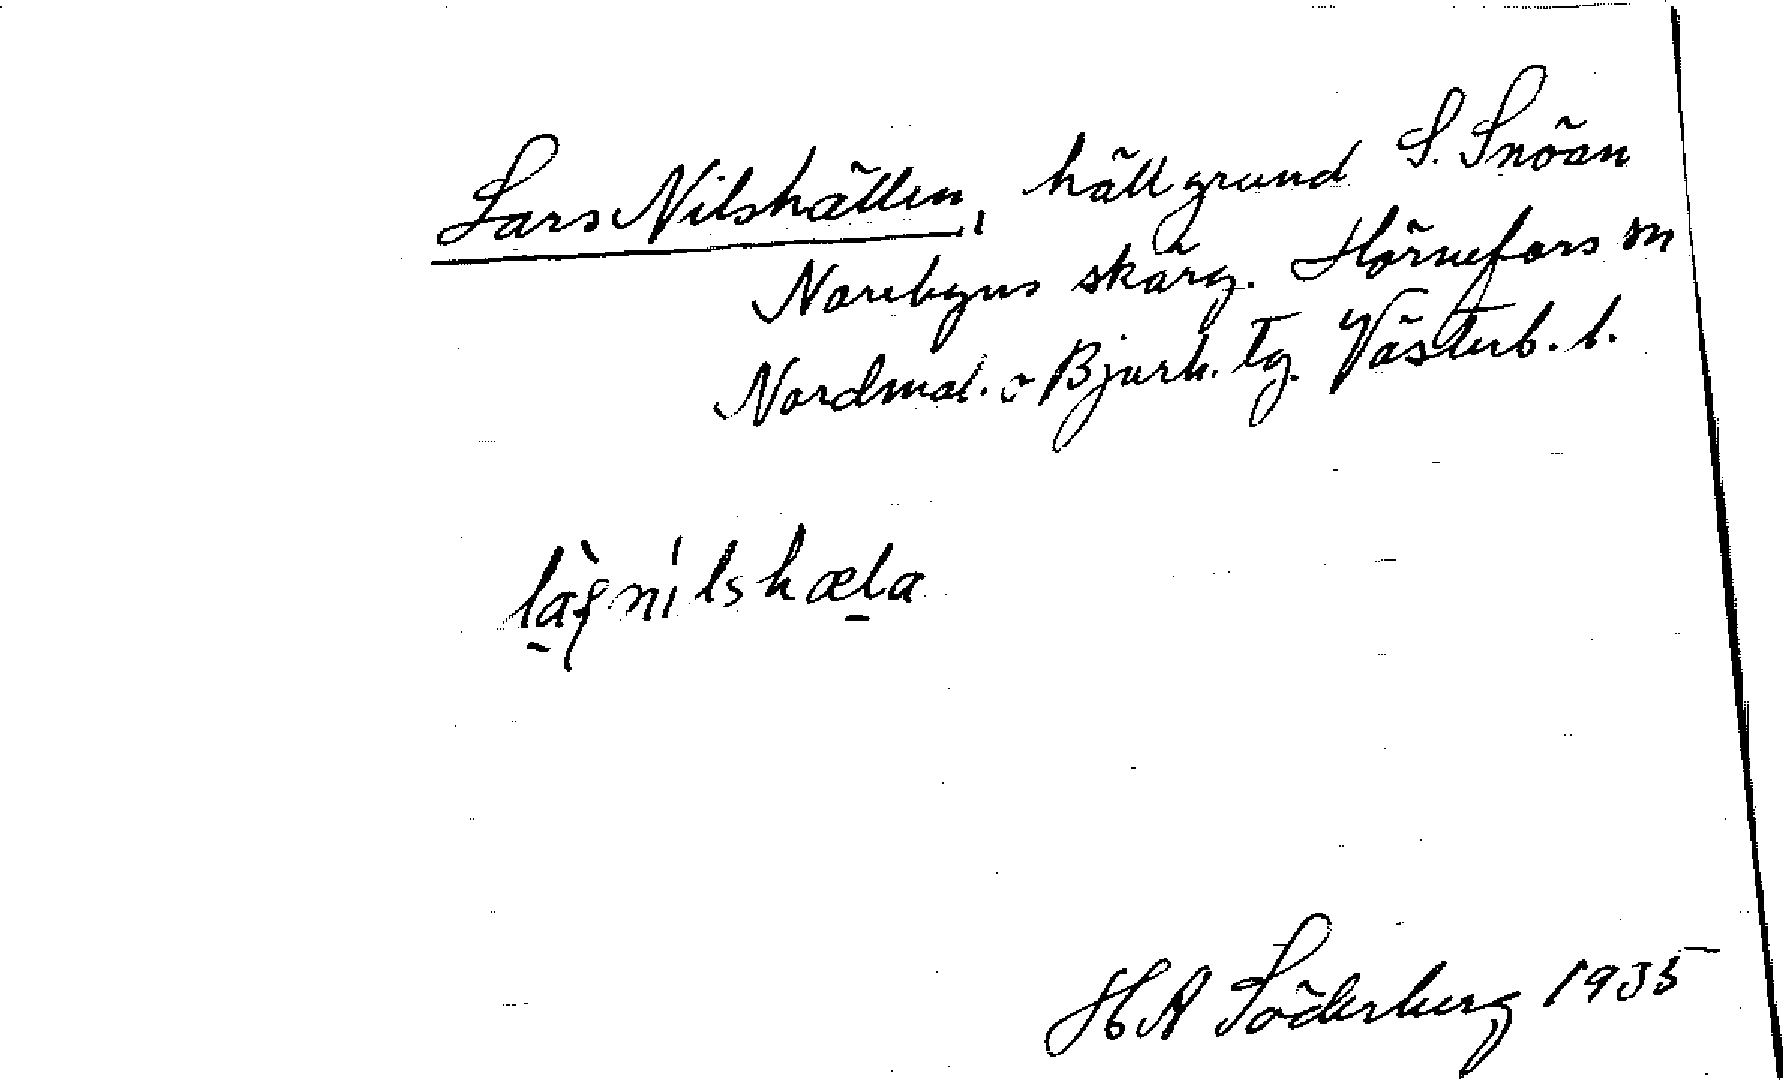 Lars Nilshällen, hällgrund S. Snöan
Norrbyns skärg. Hörnefors sn
Nordmal. o Bjurh. tg. Västerb. l.
làʂnílshæla
H A Söderberg 1935